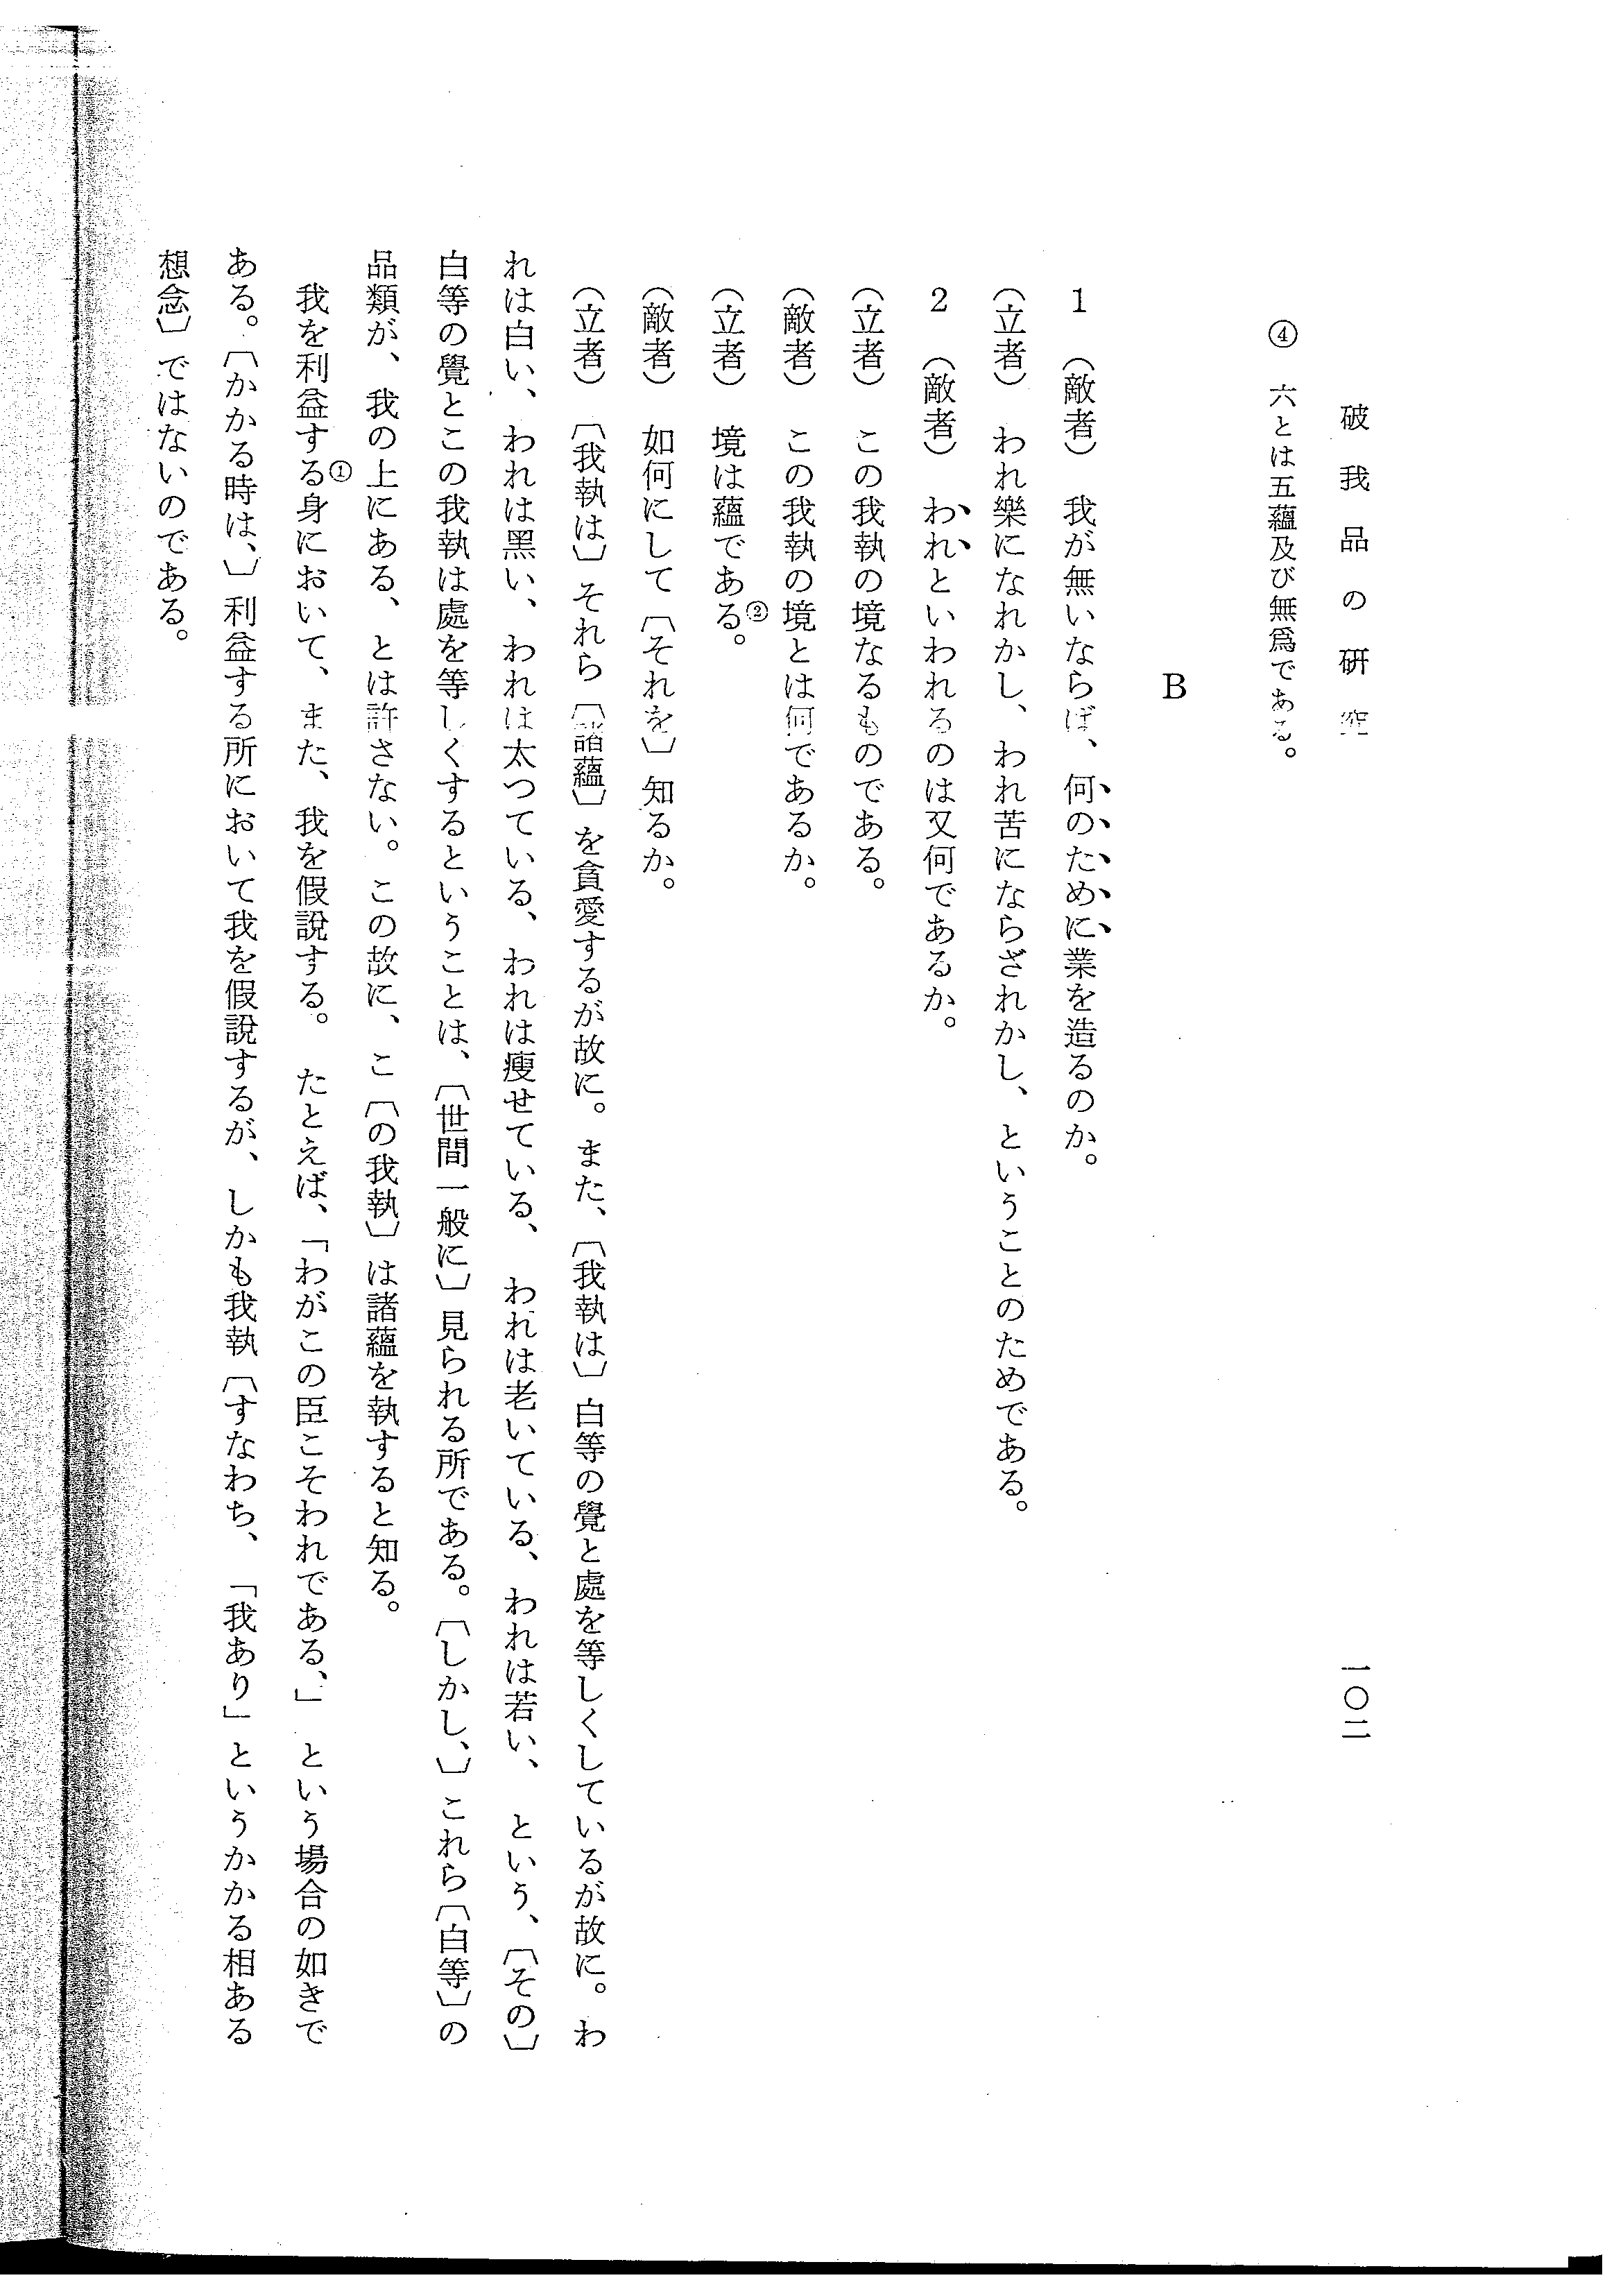 破我品の研究
一〇二
④　六とは五蘊及び無爲である。
B
1　（敵者）　我が無いならば、何のために業を造るのか。
（立者）　われ樂になれかし、われ苦にならざれかし、ということのためである。
2　（敵者）　われといわれるのは又何であるか。
（立者）　この我執の境なるものである。
（敵者）　この我執の境とは何であるか。
（立者）　境は蘊である②。
（敵者）　如何にして〔それを〕知るか。
（立者）　〔我執は〕それら〔諸蘊〕を貪愛するが故に。また、〔我執は〕白等の覺と處を等しくしているが故に。わ
れは白い、われは黑い、われは太つている、われは瘦せている、われは老いている、われは若い、という、〔その〕
白等の覺とこの我執は處を等しくするということは、〔世間一般に〕見られる所である。〔しかし、〕これら〔白等〕の
品類が、我の上にある、とは許さない。この故に、こ〔の我執〕は諸蘊を執すると知る。
我を利益する①身において、また、我を假說する。たとえば、「わがこの臣こそわれである、」という場合の如きで
ある。〔かかる時は、〕利益する所において我を假說するが、しかも我執〔すなわち、「我あり」というかかる相ある
想念〕ではないのである。